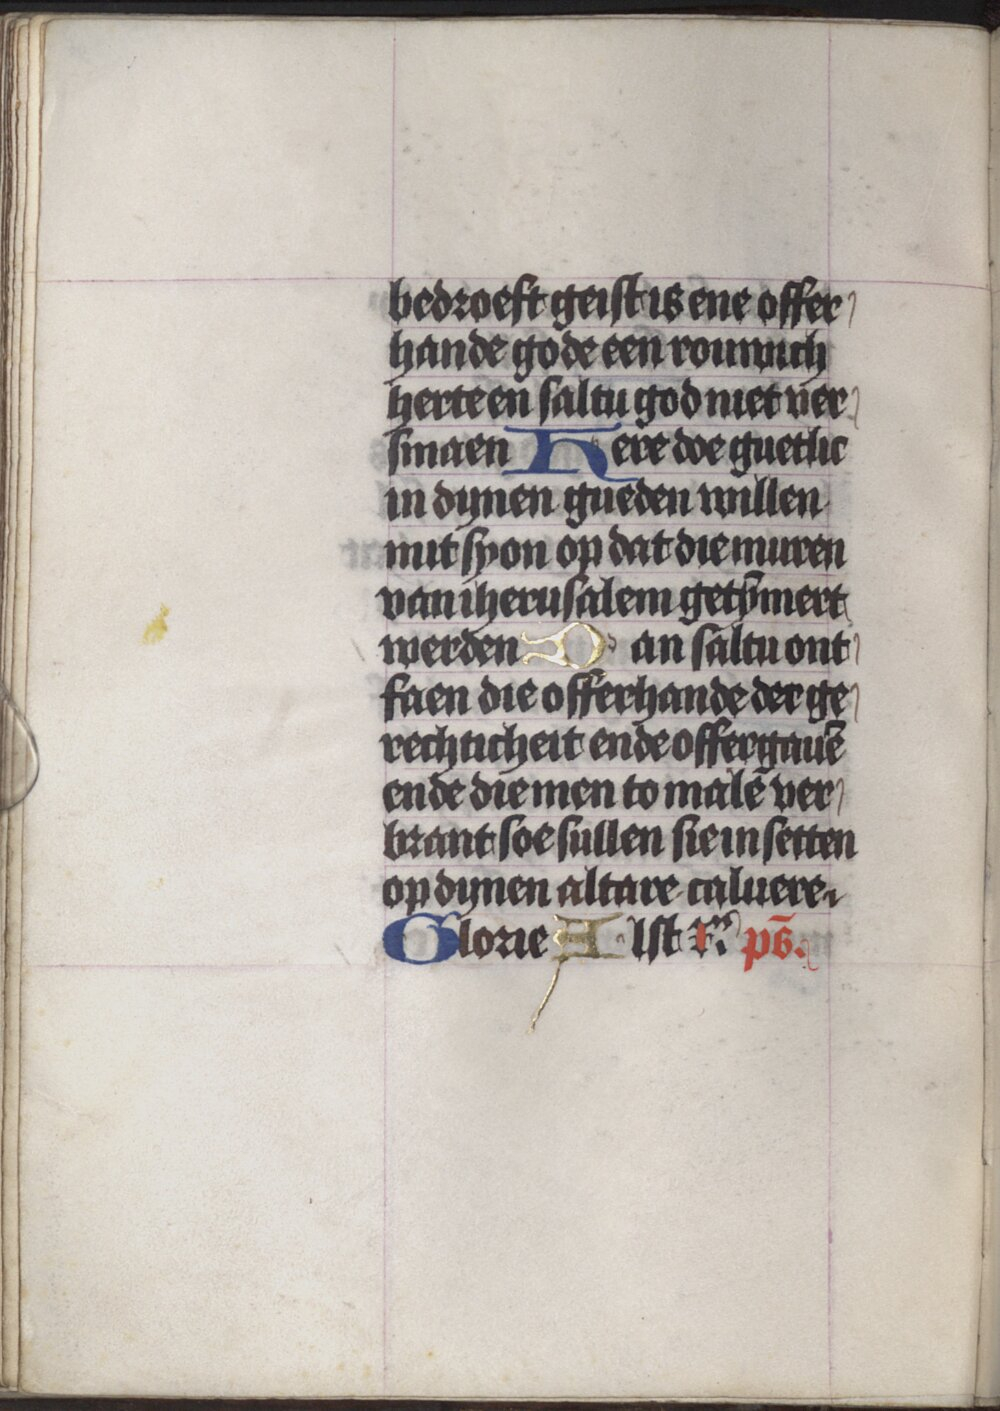 bedroeft geist is ene offer
hande gode een rouwich
herte en saltu god niet ver
smaen Here doe guetlic
in dynen gueden willen
mit syon op dat die muren
van iherusalem getȳmert
werden Dan saltu ont
faen die offerhande der ge
rechticheit ende offergauē
ende die men to malē ver
brant soe sullen sie in setten
op dynen altare caluere.
Glorie A lst r. ps̄.